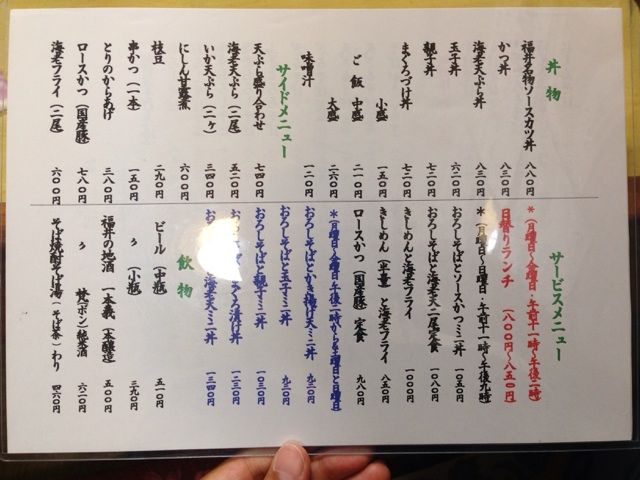 丼物
福井名物ソースカツ丼 八八〇円
かつ丼 八三〇円
海老天ぷら丼 八三〇円
玉子丼 六二〇円
親子丼 七二〇円
まぐろづけ丼 七二〇円
小盛 一五〇円
ご飯 中盛 二一〇円
大盛 二六〇円
味噌汁 一二〇円
サイドメニュー
天ぷら盛り合わせ 七四〇円
海老天ぷら(二尾) 五二〇円
いか天ぷら(二ヶ) 三四〇円
にしん甘露煮 六〇〇円
枝豆 二九〇円
串かつ(一本) 一五〇円
とりのからあげ 三八〇円
ロースかつ(国産豚) 七八〇円
海老フライ(二尾) 六〇〇円
サービスメニュー
*(月曜日〜金曜日・午前十一時〜午後二時)
日替りランチ (八〇〇円〜八五〇円)
*(月曜日〜日曜日・午前十一時〜午後九時)
おろしそばとソースかつミニ丼 一〇五〇円
おろしそばと海老天二尾定食 一〇八〇円
きしめんと海老フライ 一〇〇〇円
きしめん(半量)と海老フライ 八五〇円
ロースかつ(国産豚)定食 九八〇円
*(月曜日〜金曜日・午後二時から&土曜日と日曜日)
おろしそばとかき揚げ天ミニ丼 九三〇円
おろしそばと玉子ミニ丼 九三〇円
おろしそばと親子ミニ丼 一〇三〇円
おろ まぐろ漬け丼 一二三〇円
お 海老天ミニ丼 一三四〇円
飲物
ビール(中瓶) 五一〇円
〃(小瓶) 三九〇円
福井の地酒 一本義(本醸造) 五〇〇円
〃 梵(ボン)純米酒 六二〇円
そば焼酎そば湯(そば茶)わり 四六〇円